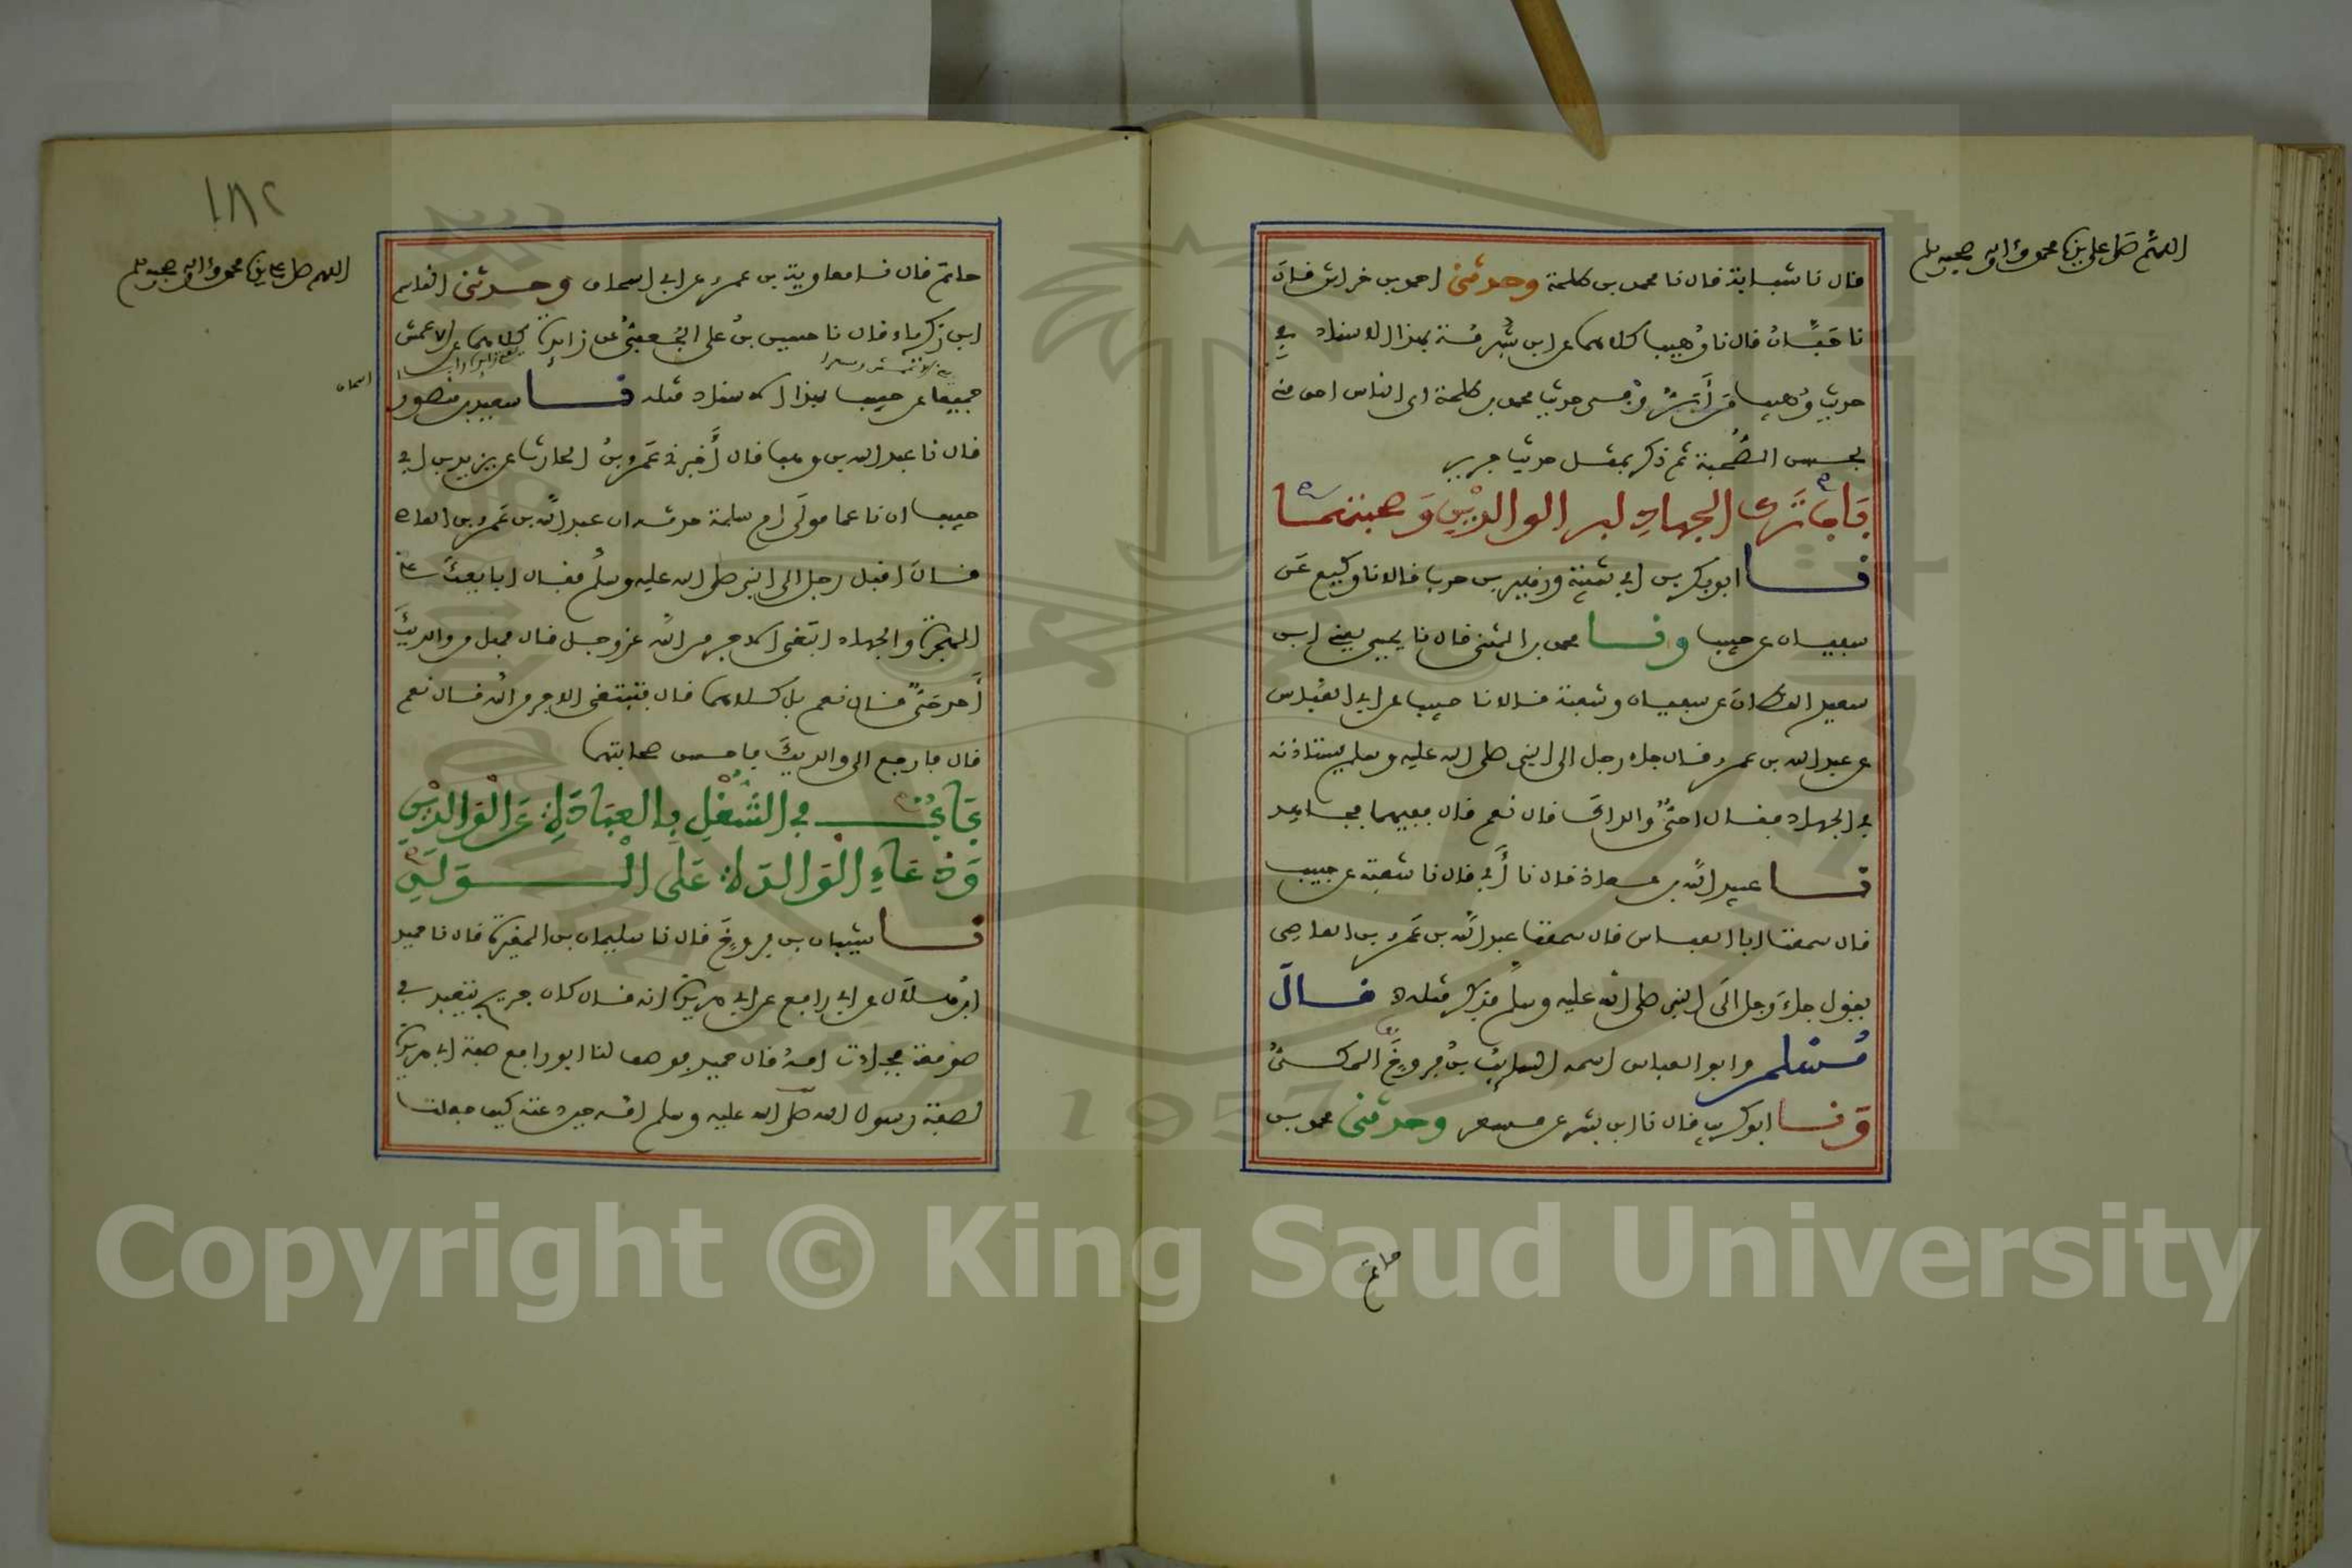 اللهم صل على نبينا محمد وءاله وصحبه وسلم
قال نا شبابة قال نا محمد بن طلحة وحدثني احمد بن خراش قال
نا حبان قال نا وهيب كلاهما عن ابن شبرمة بهذا الاسناد في
حديث وهيب من أبر وفي حديث محمد بن طلحة اى الناس احق منى
بحسن الصحبة ثم ذكر بمثل حديث جرير
باب ترك الجهاد لبر الوالدين وصحبتهما
نا ابو بكر بن ابي شيبة وزهير بن حرب قالا نا وكيع عن
سفيان عن حبيب ونا محمد بن المثنى قال نا يحيى يعني ابن
سعيد القطان عن سفيان وشعبة قالا نا حبيب عن ابي العباس
عن عبد الله بن عمرو قال جاء رجل الى النبي صلى الله عليه وسلم يستاذنه
في الجهاد فقال احي والداك قال نعم قال ففيهما فجاهد
نا عبيد الله بن معاذ قال نا أبي قال نا شعبة عن حبيب
قال سمعت ابا العباس قال سمعت عبد الله بن عمرو بن العاصي
يقول جاء رجل الى النبي صلى الله عليه وسلم فذكر مثله قال
مسلم وابو العباس اسمه السايب بن فروخ المكي
ونا ابو كريب قال نا ابن بشر عن مسعر وحدثني محمد بن
حاتم
١٨٢
اللهم صل على نبينا محمد وءاله وصحبه وسلم
حاتم قال نا معاوية بن عمرو عن ابي اسحاق وحدثني القاسم
ابن زكرياء قال نا حسين بن علي الجعفي عن زايدة كلاهما عن الاعمش
جميعا عن حبيب بهذا الاسناد مثله نا سعيد بن منصور
قال نا عبد الله بن وهب قال أخبرني عمرو بن الحارث عن يزيد بن ابي
حبيب ان ناعما مولى ام سلمة حدثه ان عبد الله بن عمرو بن العاص
قال اقبل رجل الى النبي صلى الله عليه وسلم فقال ابايعك على
الهجرة والجهاد ابتغي الاجر من الله عز وجل قال فهل من والديك
أحد حي قال نعم بل كلاهما قال فتبتغي الاجر من الله قال نعم
قال فارجع الى والديك فاحسن صحابتهما
باب في الشغل بالعبادة عن الوالدين
ودعاء الوالدة على الولد
نا شيبان بن فروخ قال نا سليمان بن المغيرة قال نا حميد
ابن هلال عن ابي رافع عن ابي هريرة انه قال كان جريج يتعبد في
صومعة فجاءت امه قال حميد فوصف لنا ابو رافع صفة ابي هريرة
لصفة رسول الله صلى الله عليه وسلم امه حين دعته كيف جعلت
Copyright © King Saud University
1957